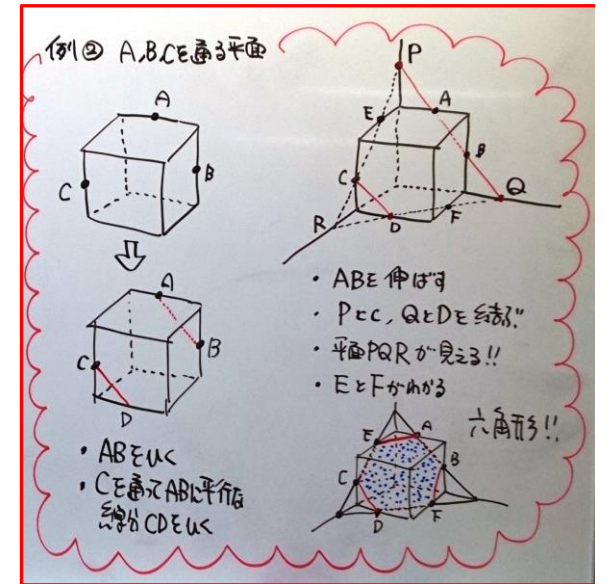 例② A,B,Cを通る平面
A
B
C
A
B
C
D
・ABをひく
・Cを通ってABに平行な
線分CDをひく
P
A
E
B
C
Q
R
D
F
・ABを伸ばす
・PとC, QとDを結ぶ
・平面PQRが見える!!
・EとFがわかる
六角形!!
E
A
C
B
D
F